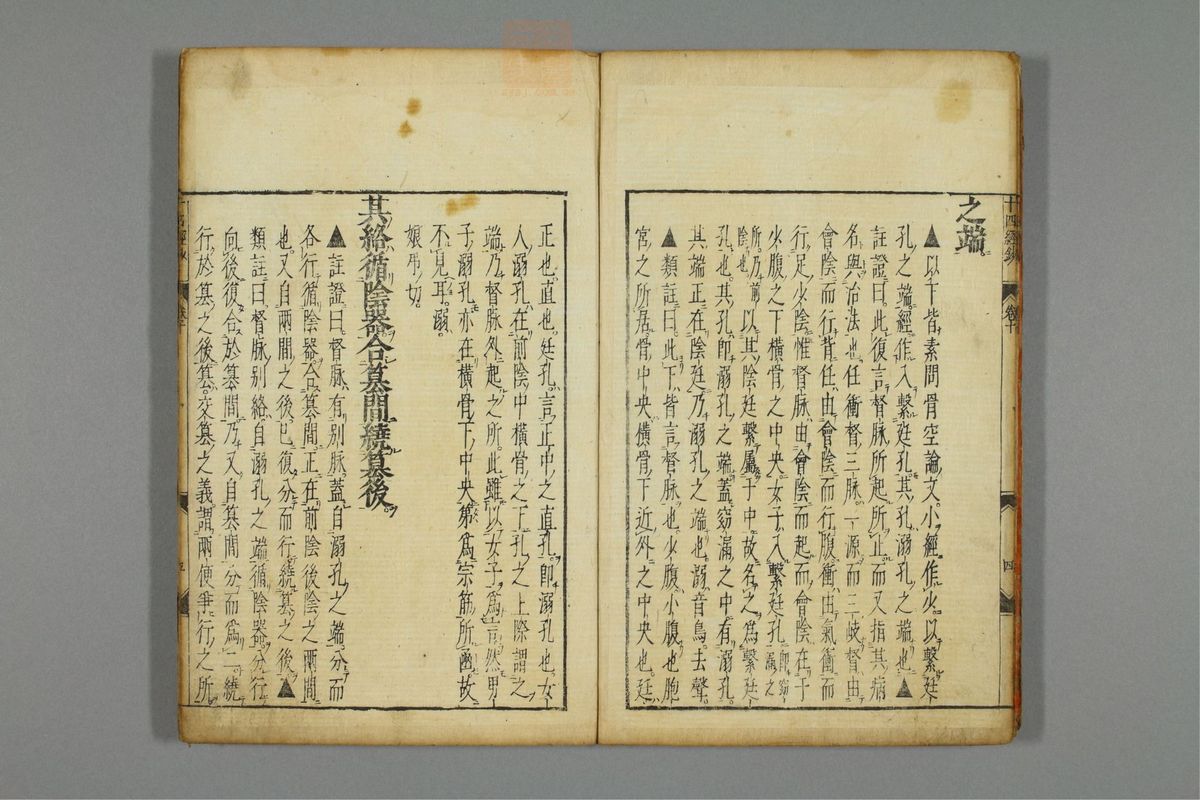 之端
▲以下皆素問骨空論文。小經作少。以繫廷
孔之端經作入繫廷孔其孔溺孔之端也▲
註證曰。此復言督脉所起所止而又指其病
名與治法也任衝督三脉。一源而三岐督由
會陰而行背任由會陰而行腹衝由氣衝而
行足少陰惟督脉由會陰而起而會陰在于
少腹之下橫骨之中央。女子入繫廷孔即竅漏之
所。乃前陰也以其陰廷繫屬于中故名之爲繫廷
孔也。其孔即溺孔之端蓋竅漏之中有溺孔
其端正在陰廷乃溺孔之端也。溺音鳥。去聲。
▲類註曰。此下皆言督脉也少腹小腹也胞
宮之所居。骨中央橫骨下近外之中央也。廷
十四經
卷十
四
正也直也。廷孔言正中之直孔即溺孔也女
人溺孔在前陰中橫骨之下孔之上際謂之
端乃督脉外起之所。此雖以女子爲言然男
子溺孔亦在橫骨下中央第爲宗筋所函故
不見耳。溺
娘弔切
其絡循陰器合篡間繞篡後
▲註證曰。督脉有別脉。蓋自溺孔之端分而
各行循陰器合篡間正在前陰後陰之兩間
也。又自兩間之後已復分而行。繞篡之後▲
類註曰督脉別絡自溺孔之端循陰器分行
向後復合於篡間乃又自篡間分而爲二繞
行於篡之後篡。交篡之義謂兩便爭行之所
五